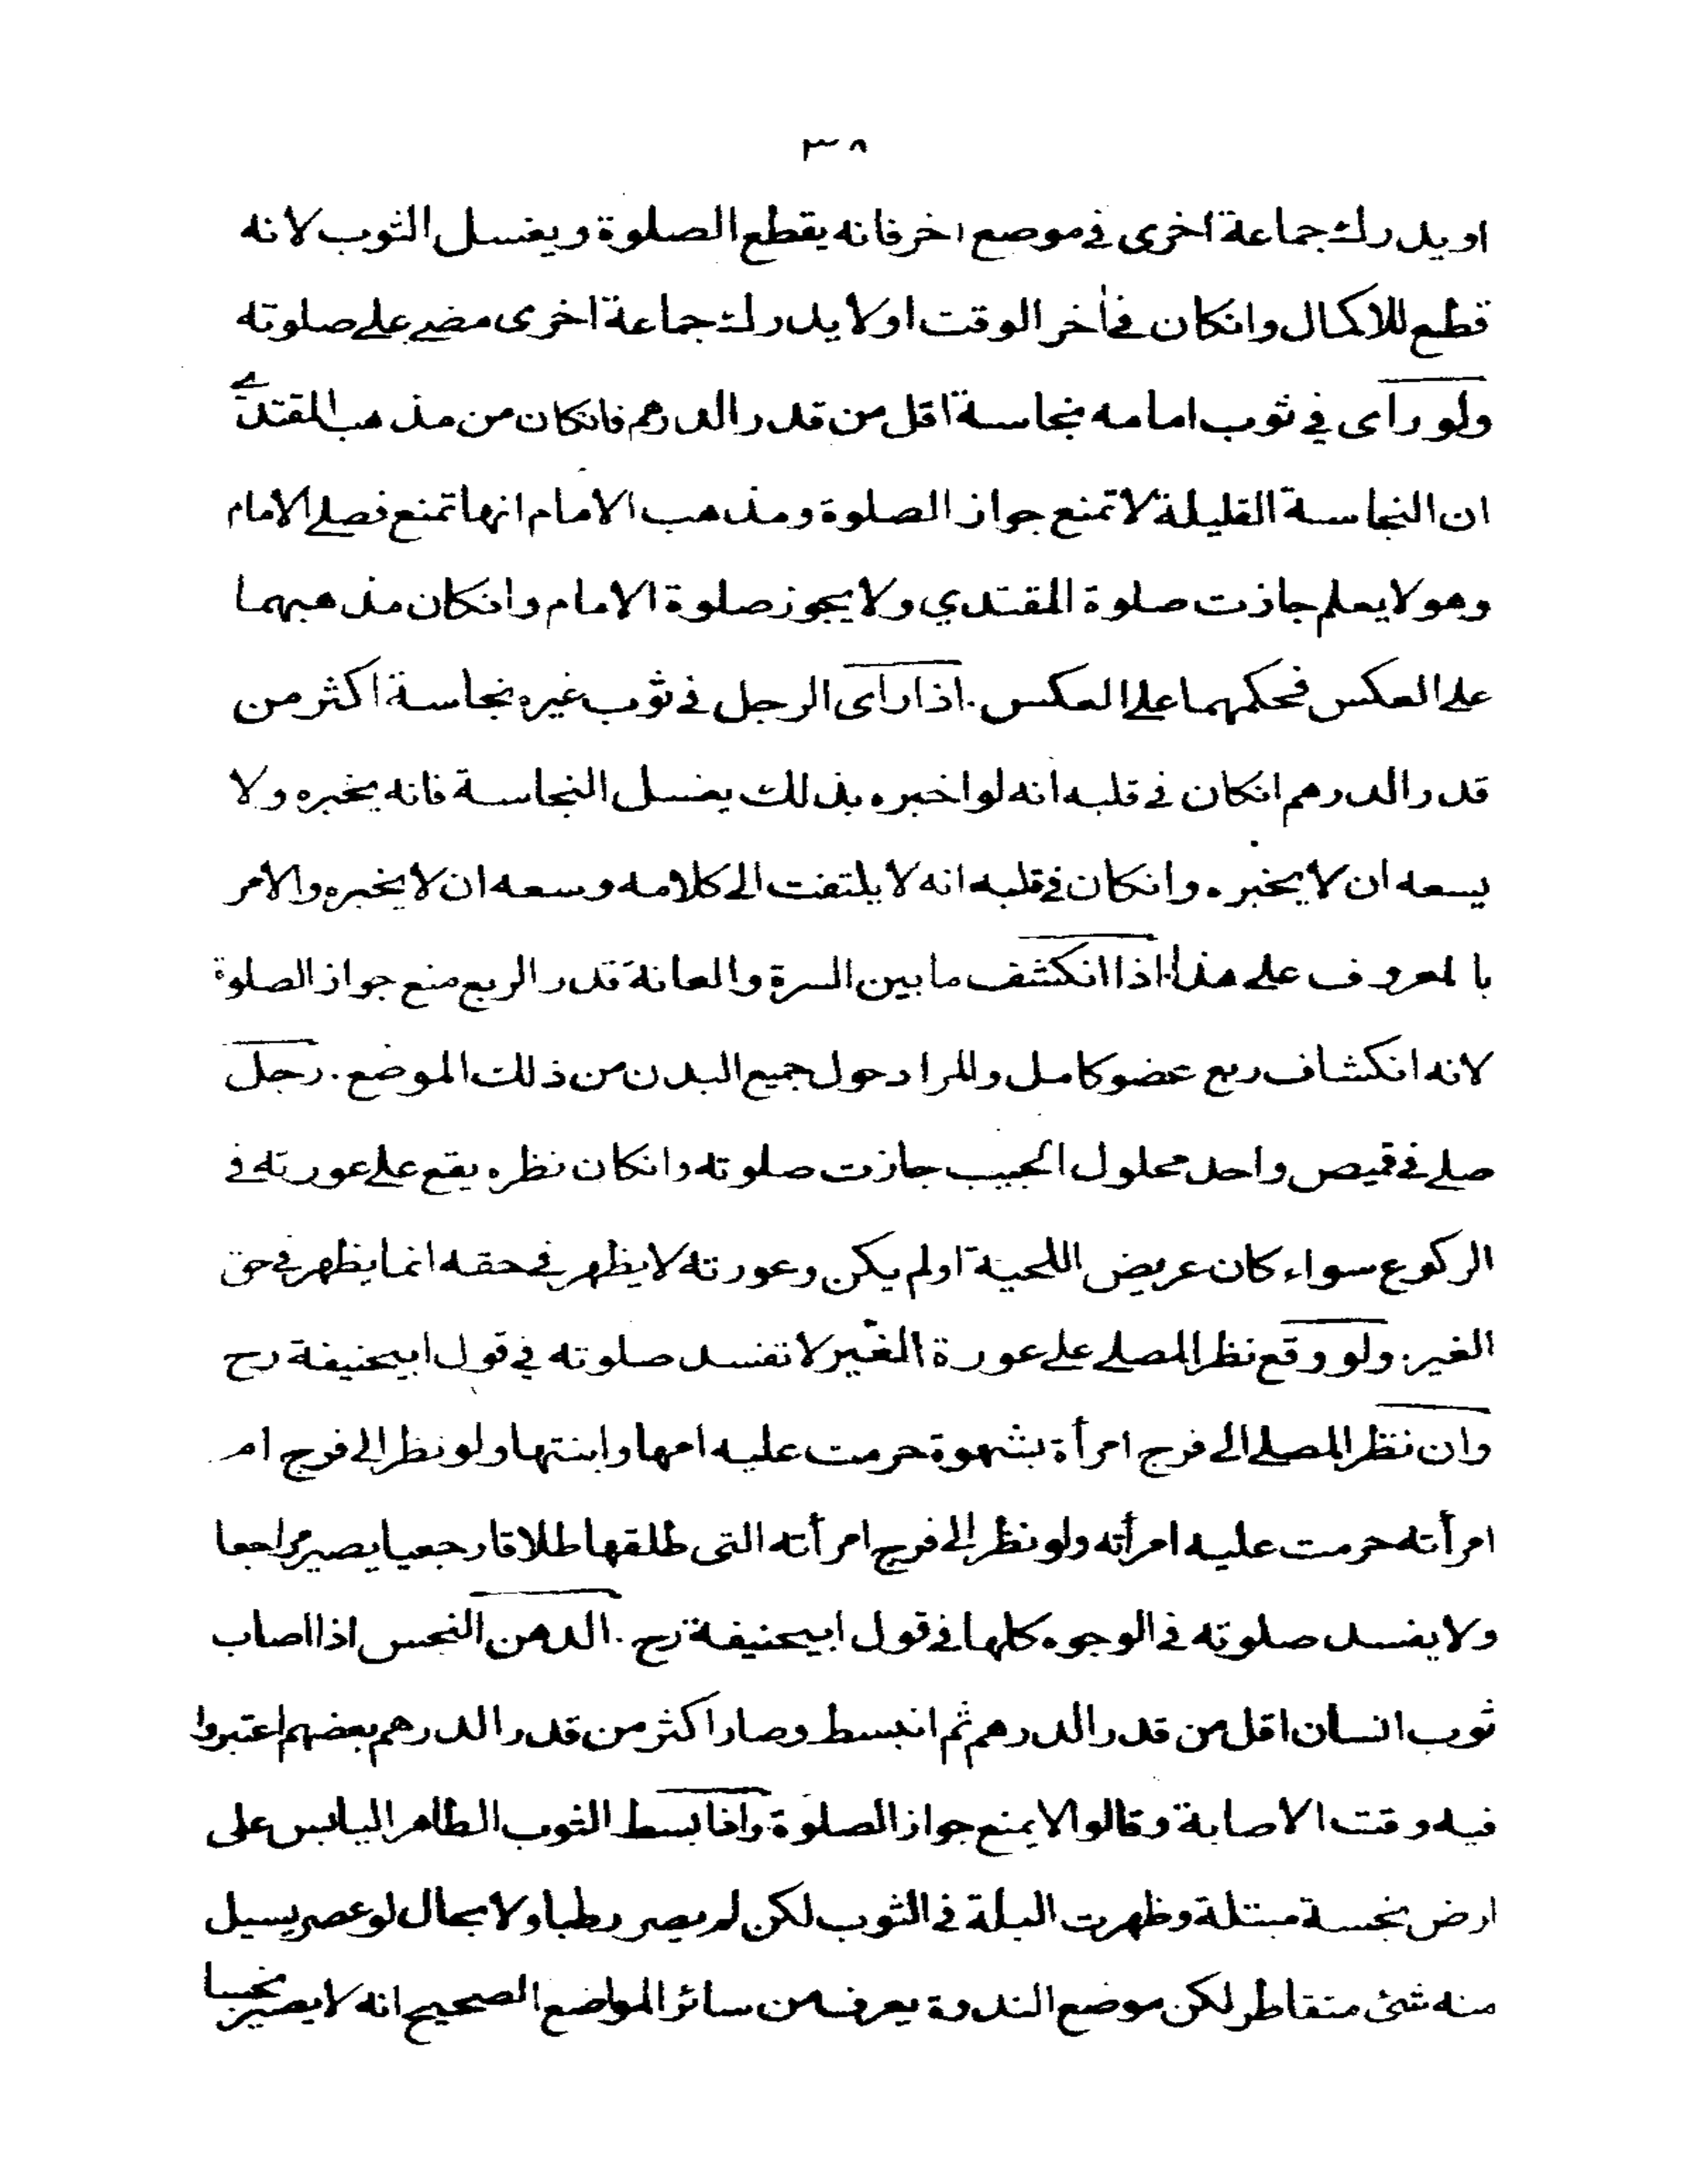 ٣٨
او يدرك جماعة اخرى في موضع اخر فانه يقطع الصلوة ويغسل الثوب لانه
قطع للاكمال وانكان في أخر الوقت اولا يدرك جماعة اخرى مضى على صلوته
ولو رأى في ثوب امامه نجاسة اقل من قدر الدرهم فانكان من مذهب المقتدے
ان النجاسة القليلة لا تمنع جواز الصلوة ومذهب الامام انها تمنع فصلے الامام
وهو لا يعلم جازت صلوة المقتدي ولا يجوز صلوة الامام وانكان مذهبهما
علے العكس فحكمهما علے العكس. اذا رأى الرجل في ثوب غيره نجاسة اكثر من
قدر الدرهم انكان في قلبه انه لو اخبره بذلك يغسل النجاسة فانه يخبره ولا
يسعه ان لا يخبره وانكان في قلبه انه لا يلتفت الى كلامه وسعه ان لا يخبره والامر
بالمعروف علے هذا. اذا انكشف ما بين السرة والعانة قدر الربع منع جواز الصلوة
لانه انكشاف ربع عضو كامل والمراد حول جميع البدن من ذلك الموضع. رجل
صلے في قميص واحد محلول الجيب جازت صلوته وانكان نظره يقع علے عورته في
الركوع سواء كان عريض اللحية اولم يكن وعورته لا يظهر في حقه انما يظهر في حق
الغير. ولو وقع نظر المصلے علے عورة الغير لا تفسد صلوته في قول ابيحنيفة رح
وان نظر المصلے الى فرج امرأة بشهوة حرمت عليه امها وابنتها ولو نظر الى فرج ام
امرأته حرمت عليه امرأته ولو نظر الى فرج امرأته التى طلقها طلاقا رجعيا يصير مراجعا
ولا يفسد صلوته في الوجوه كلها في قول ابيحنيفة رح. الدهن النجس اذا اصاب
ثوب انسان اقل من قدر الدرهم ثم انبسط وصار اكثر من قدر الدرهم بعضهم اعتبروا
فيه وقت الاصابة وقالوا لا يمنع جواز الصلوة. واذا بسط الثوب الطاهر اليابس على
ارض نجسة مبتلة وظهرت البلة في الثوب لكن لم يصر رطبا ولا بحال لو عصر يسيل
منه شئ متقاطر لكن موضع الندوة يعرف من سائر المواضع الصحيح انه لا يصير نجسا